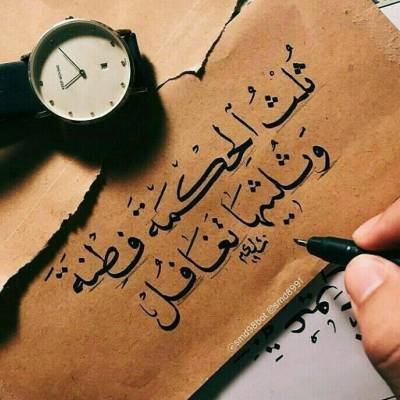 ثُلْثُ الحِكْمَةِ فِطْنَةٌ
وَثُلُثَيْهَا تَغَافُل
@smd98bot @smd8991